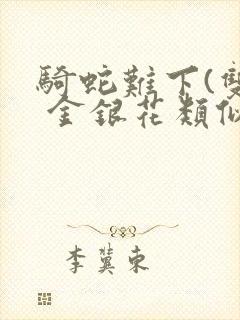 騎蛇難下(雙
金銀花類似
李冀東